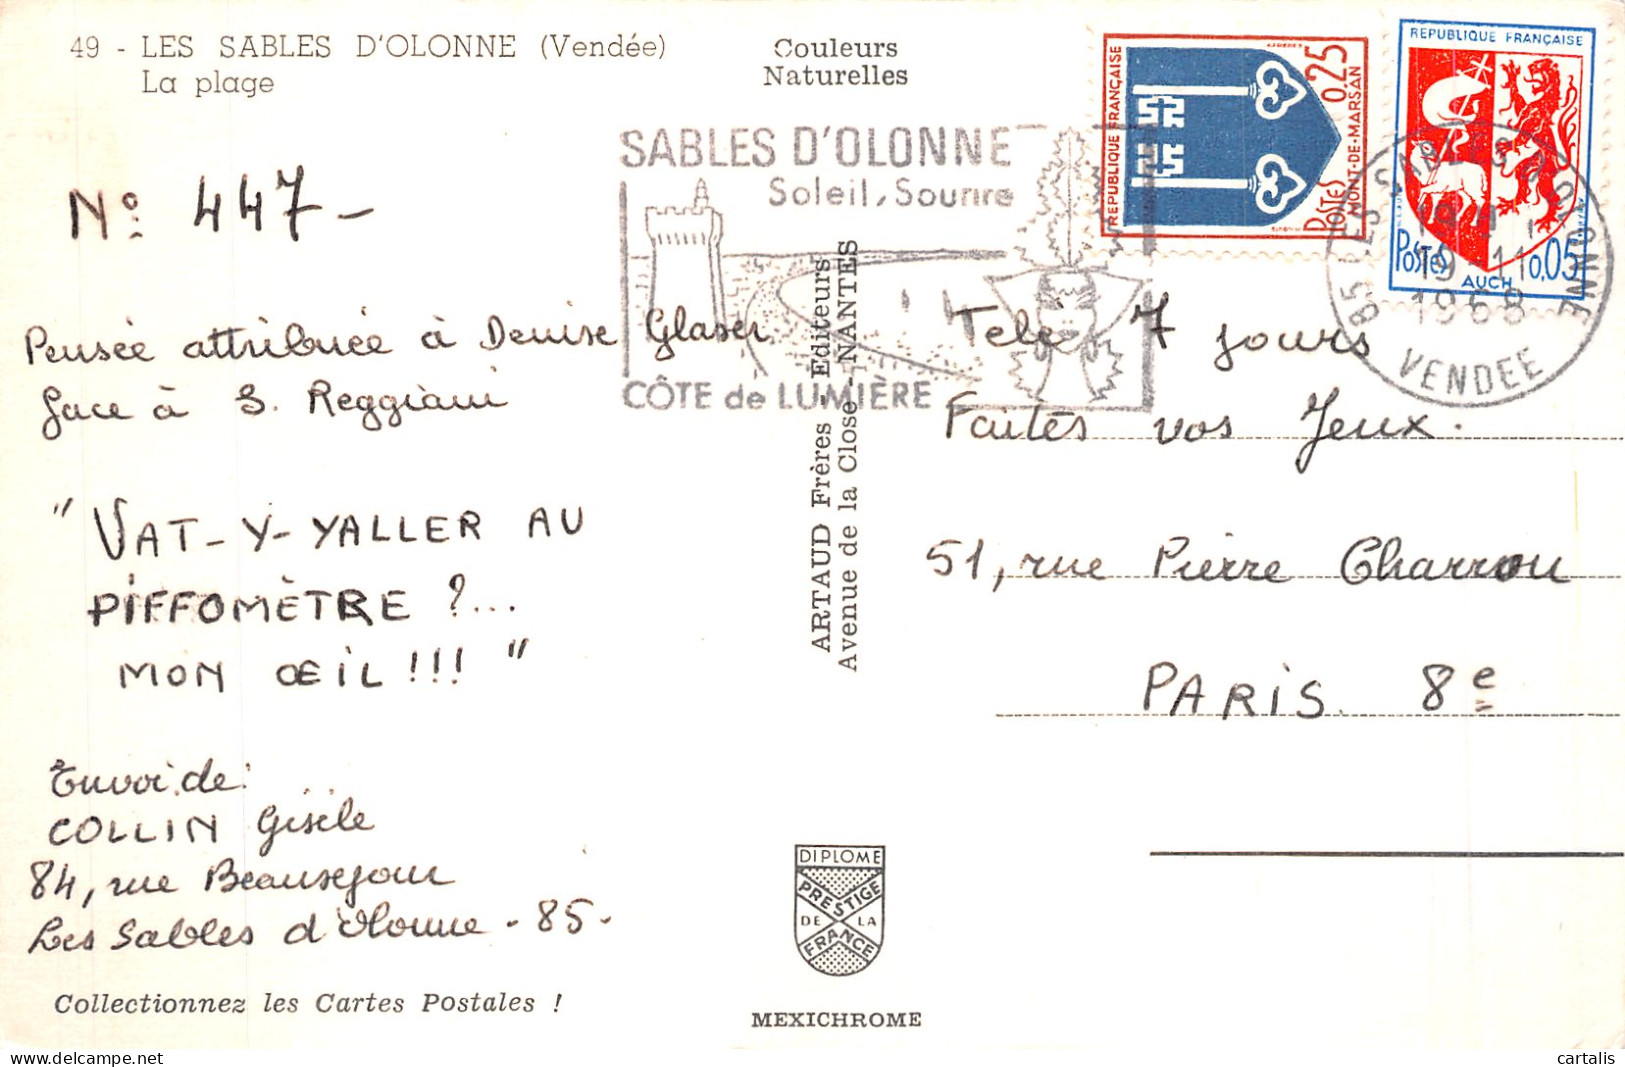 49 - LES SABLES D'OLONNE (Vendée)
La plage
Couleurs
Naturelles
REPUBLIQUE FRANÇAISE
0,25
POSTES
MONT-DE-MARSAN
REPUBLIQUE FRANÇAISE
POSTES
AUCH
0,05
SABLES D'OLONNE
Soleil, Sourire
CÔTE de LUMIÈRE
85 LES SABLES D'OLONNE
19 - 11
1968
VENDEE
N° 447 -
Pensée attribuée à Denise Glaser
face à S. Reggiani
" VAT-Y-YALLER AU
PIFFOMÈTRE ?...
MON ŒIL !!! "
Envoi de:
COLLIN Gisèle
84, rue Beauséjour
Les Sables d'Olonne - 85 -
Collectionnez les Cartes Postales !
ARTAUD Frères - Editeurs
Avenue de la Close - NANTES
Télé 7 jours
Faites vos Jeux.
51, rue Pierre Charron
PARIS 8e
DIPLOME
PRESTIGE
DE LA
FRANCE
MEXICHROME
cartalis